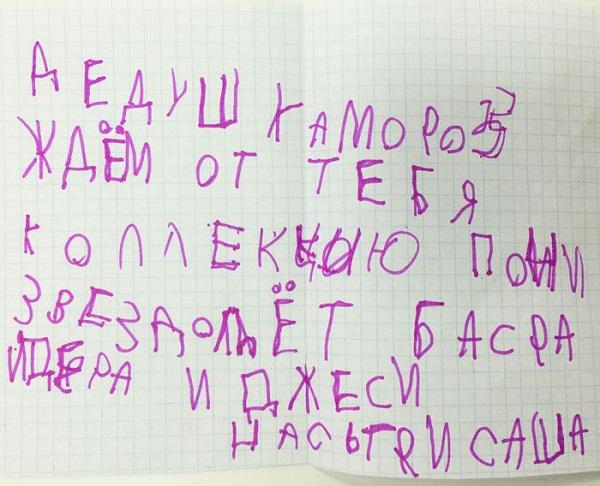 ДЕДУШКАМОРОЗ
ЖДЁМ ОТ ТЕБЯ
КОЛЛЕКЦЫЮ ПОНИ
ЗВЕЗДОЛЁТ БАСРА
ИДЕРА И ДЖЕСИ
НАСЫТRИ САША